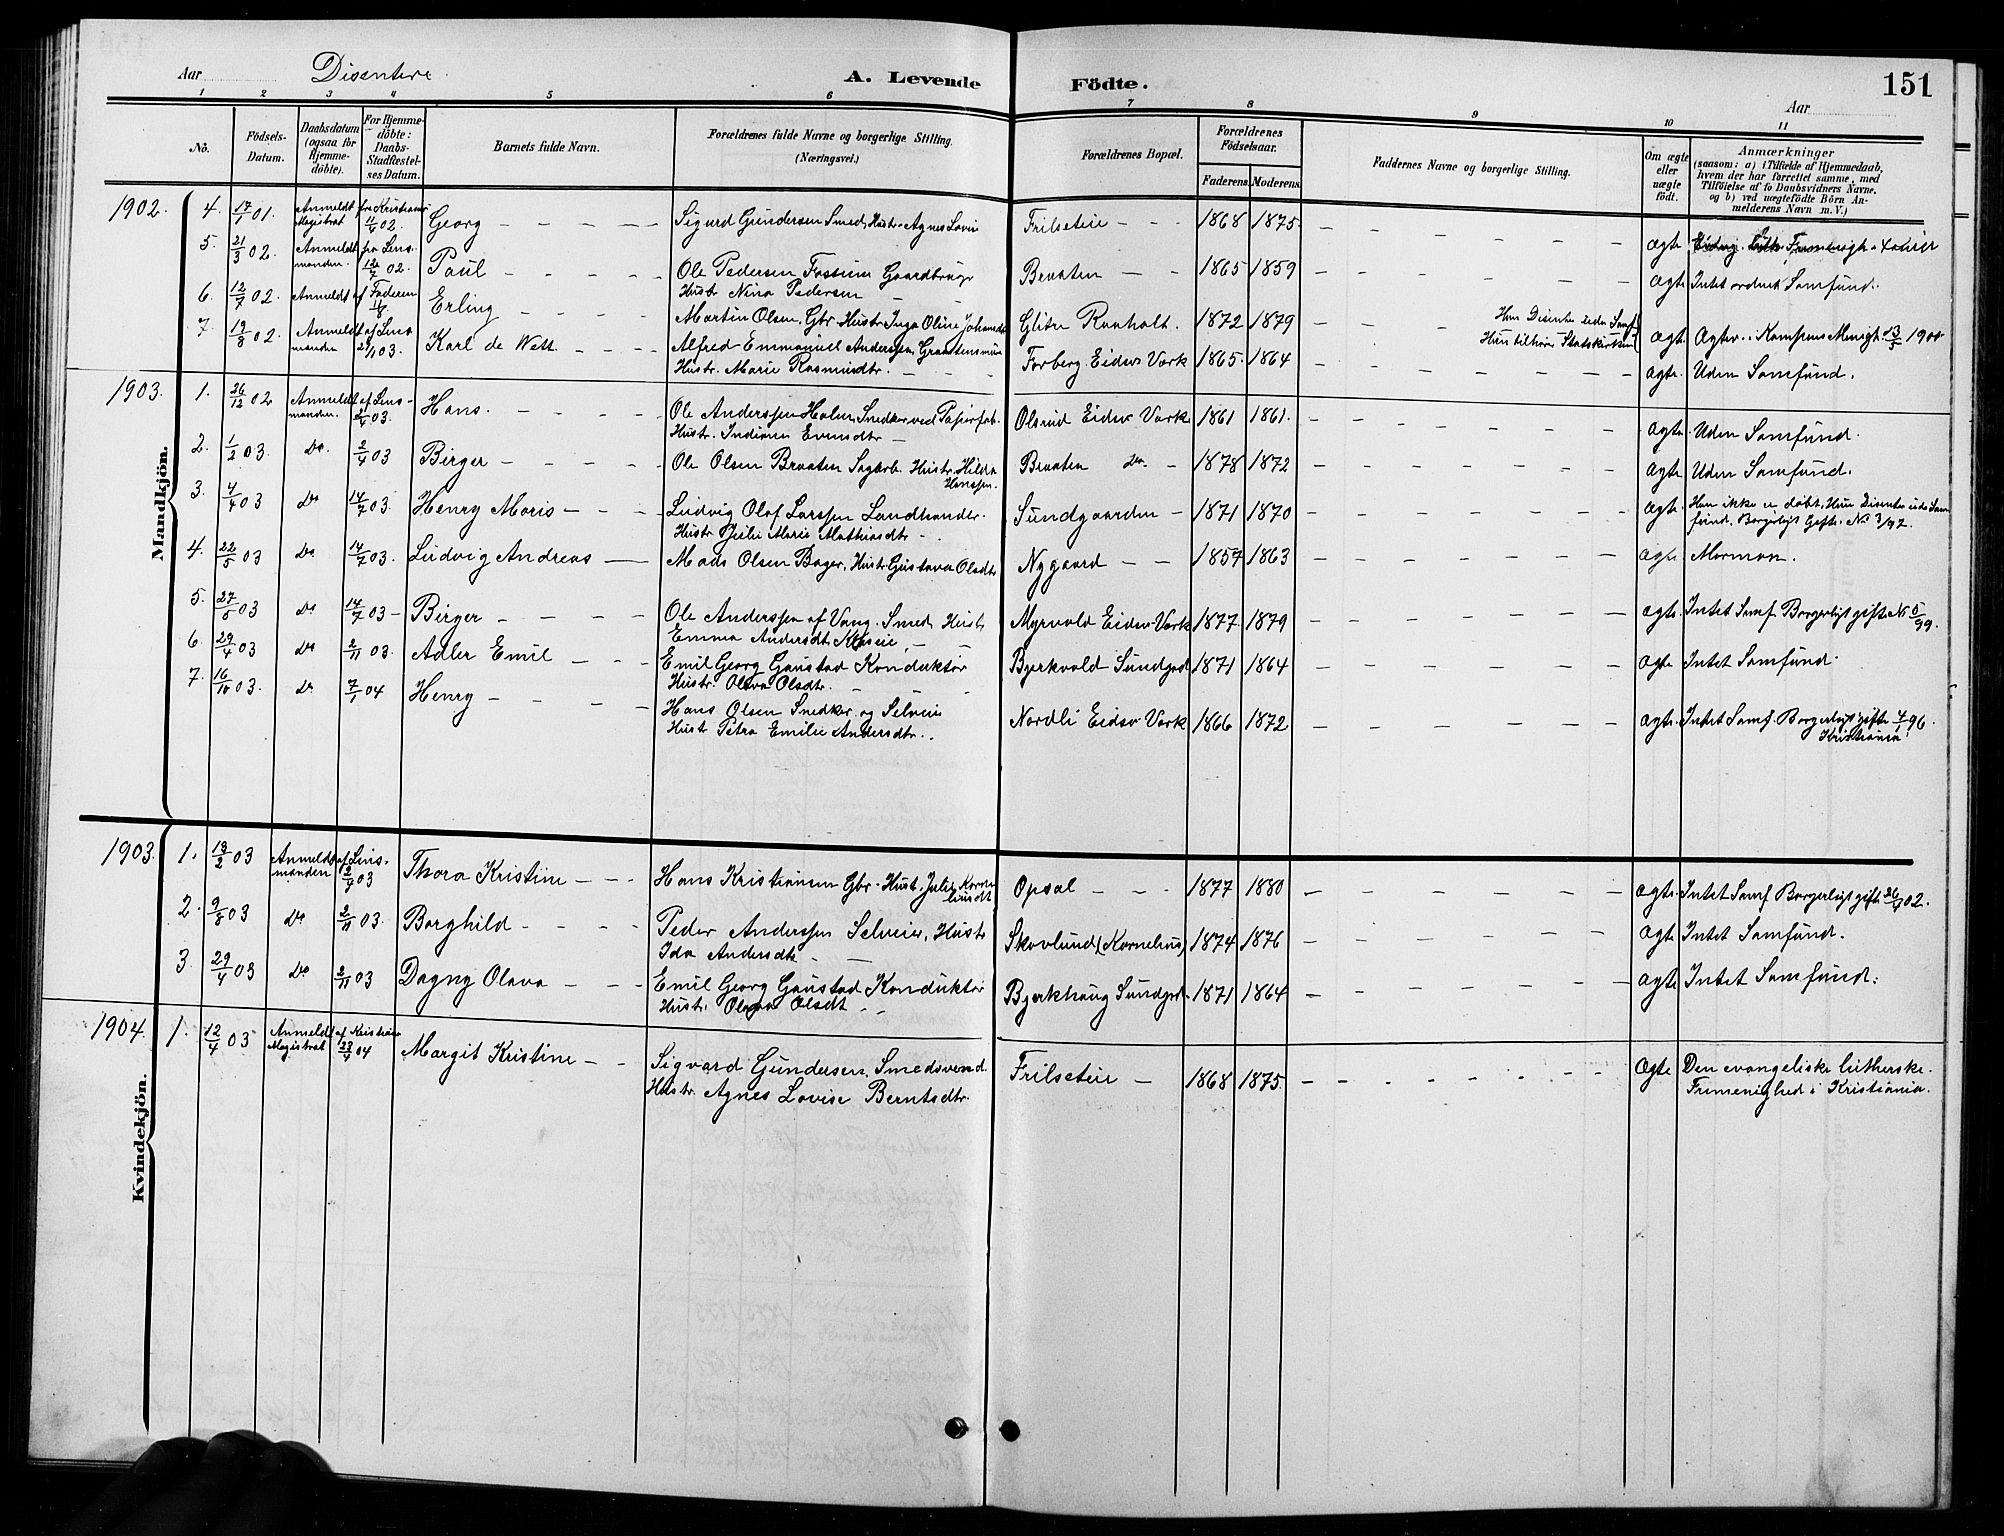 Aar Disentere A. Levende Födte. Aar 151
1 2 3 4 5 6 7 8 9 10 11
No. Födsels-Datum. Daabsdatum (ogsaa for Hjemmedöbte). For Hjemmedöbte: Daabs-Stadfæstelses Datum. Barnets fulde Navn. Forældrenes fulde Navne og borgerlige Stilling. (Næringsvei.) Forældrenes Bopæl. Forældrenes Födselsaar. Faderens. Moderens. Faddernes Navne og borgerlige Stilling. Om ægte eller uægte födt. Anmærkninger
(saasom: a) i Tilfælde af Hjemmedaab,
hvem der har forrettet samme, med
Tilföielse af to Daabsvidners Navne,
og b) ved uægtefödte Börn Anmelderens Navn m. V.)
Mandkjön.
1902. 4. 17/1 01. Anmeldt fra Kristiania Magistrat 11/4 02. Georg Sigurd Gundersen Smed, Hustr. Agnes Lovise Frilseteie 1868 1875 ægte
5. 21/3 02. Anmeldt fra Lensmanden. 12/7 02. Paul Ole Pedersen Fossum Gaardbruger Hustr Nina Pedersen Braaten 1865 1859 ægte Intet ordnet Samfund.
6. 12/7 02. Anmeldt af Faderen 11/8 Erling Martin Olsen, Gbr. Hustr. Inga Oline Johansdt Glitre Raaholt. 1872 1879 Han Disenter uden Samf. Hun tilhører Statskirken ægt. Ægtev. i Kampens Menigh. 13/5 1900
7. 19/8 02. Anmeldt af Lensmanden 21/1 03. Karl de Wett Alfred Emmanuel Anderssen, Hustr. Marie Rasmusdtr. Forberg Eidsv Værk 1865 1864 ægte. Uden Samfund.
1903. 1. 26/12 02 Anmeldt af Lensmanden. 2/4 03. Hans. Ole Anderssen Holm Snedker ved Papirfab. Hustr. Indiane Evensdtr Olsrud Eidsv Værk 1861 1861. ægte. Uden Samfund.
2. 1/2 03. Do. 2/4 03 Birger Ole Olsen Braaten Sagarb. Hustr. Hilda Hanssen. Braaten Do. 1878 1872 ægte Uden Samfund.
3. 4/4 03 Do 14/7 03. Henry Moris Ludvig Olaf Larssen Landhandler. Hustr Marie Mathiasdtr Sundgaarden 1871 1870 ægte. Han ikke er døbt, Hun Disenter uden Samfund. Borgerligt Gift. No 3/97.
4. 22/5 03 Do 14/7 03. Ludvig Andreas Mads Olsen Bager, Hustr Gustava Olsdtr Nygaard 1857 1863 ægte Mormon.
5. 27/5 03 Do 14/7 03 Birger Ole Anderssen af Vang Smed Hustr Emma Andersdt. Myrvold Eidsv Værk 1877 1879 ægte. Intet Samf. Borgerligt gift No 5/99.
6. 29/4 03 Do 2/11 03. Adler Emil Emil Georg Gaustad Konduktør Hustr. Olava Olsdtr. Bjerkvold Sundgrd 1871 1864 ægte Intet Samfund.
7. 16/10 03. Do 7/1 04 Henry Hans Olsen Snedker og Selveie Hustr Petra Emilie Andersdtr. Nordli Eidsv Værk 1866 1872 ægte. Intet Samf. Borgerligt gifte 4/1 96. Kristiania.
Kvindekjön.
1903. 1. 13/2 03 Anmeldt af Lensmanden 2/4 03 Thora Kristine Hans Kristiansen Gbr. Hust. Julie Opsal 1877 1880 ægte. Intet Samf Borgerligt gift. 26/4 02.
2. 9/8 03 Do 2/11 03. Borghild Peder Anderssen Selveier, Hustr Ida Andersdtr Skovlund (Kornelius) 1874 1876 ægte Intet Samfund.
3. 29/4 03 Do 2/11 03 Dagny Olava Emil Georg Gaustad Konduktør Hustr. Olava Olsdt Bjerkhaug Sundgrd. 1871 1864 ægte Intet Samfund.
1904. 1. 12/4 03 Anmeldt af Kristiania Magistrat 23/4 04 Margit Kristine Sigvard Gundersen, Smedsvend. Hustr. Agnes Lovise Berntsdtr. Frilseteie 1868 1875. ægte Den evangeliske lutherske Frimenighed i Kristiania.